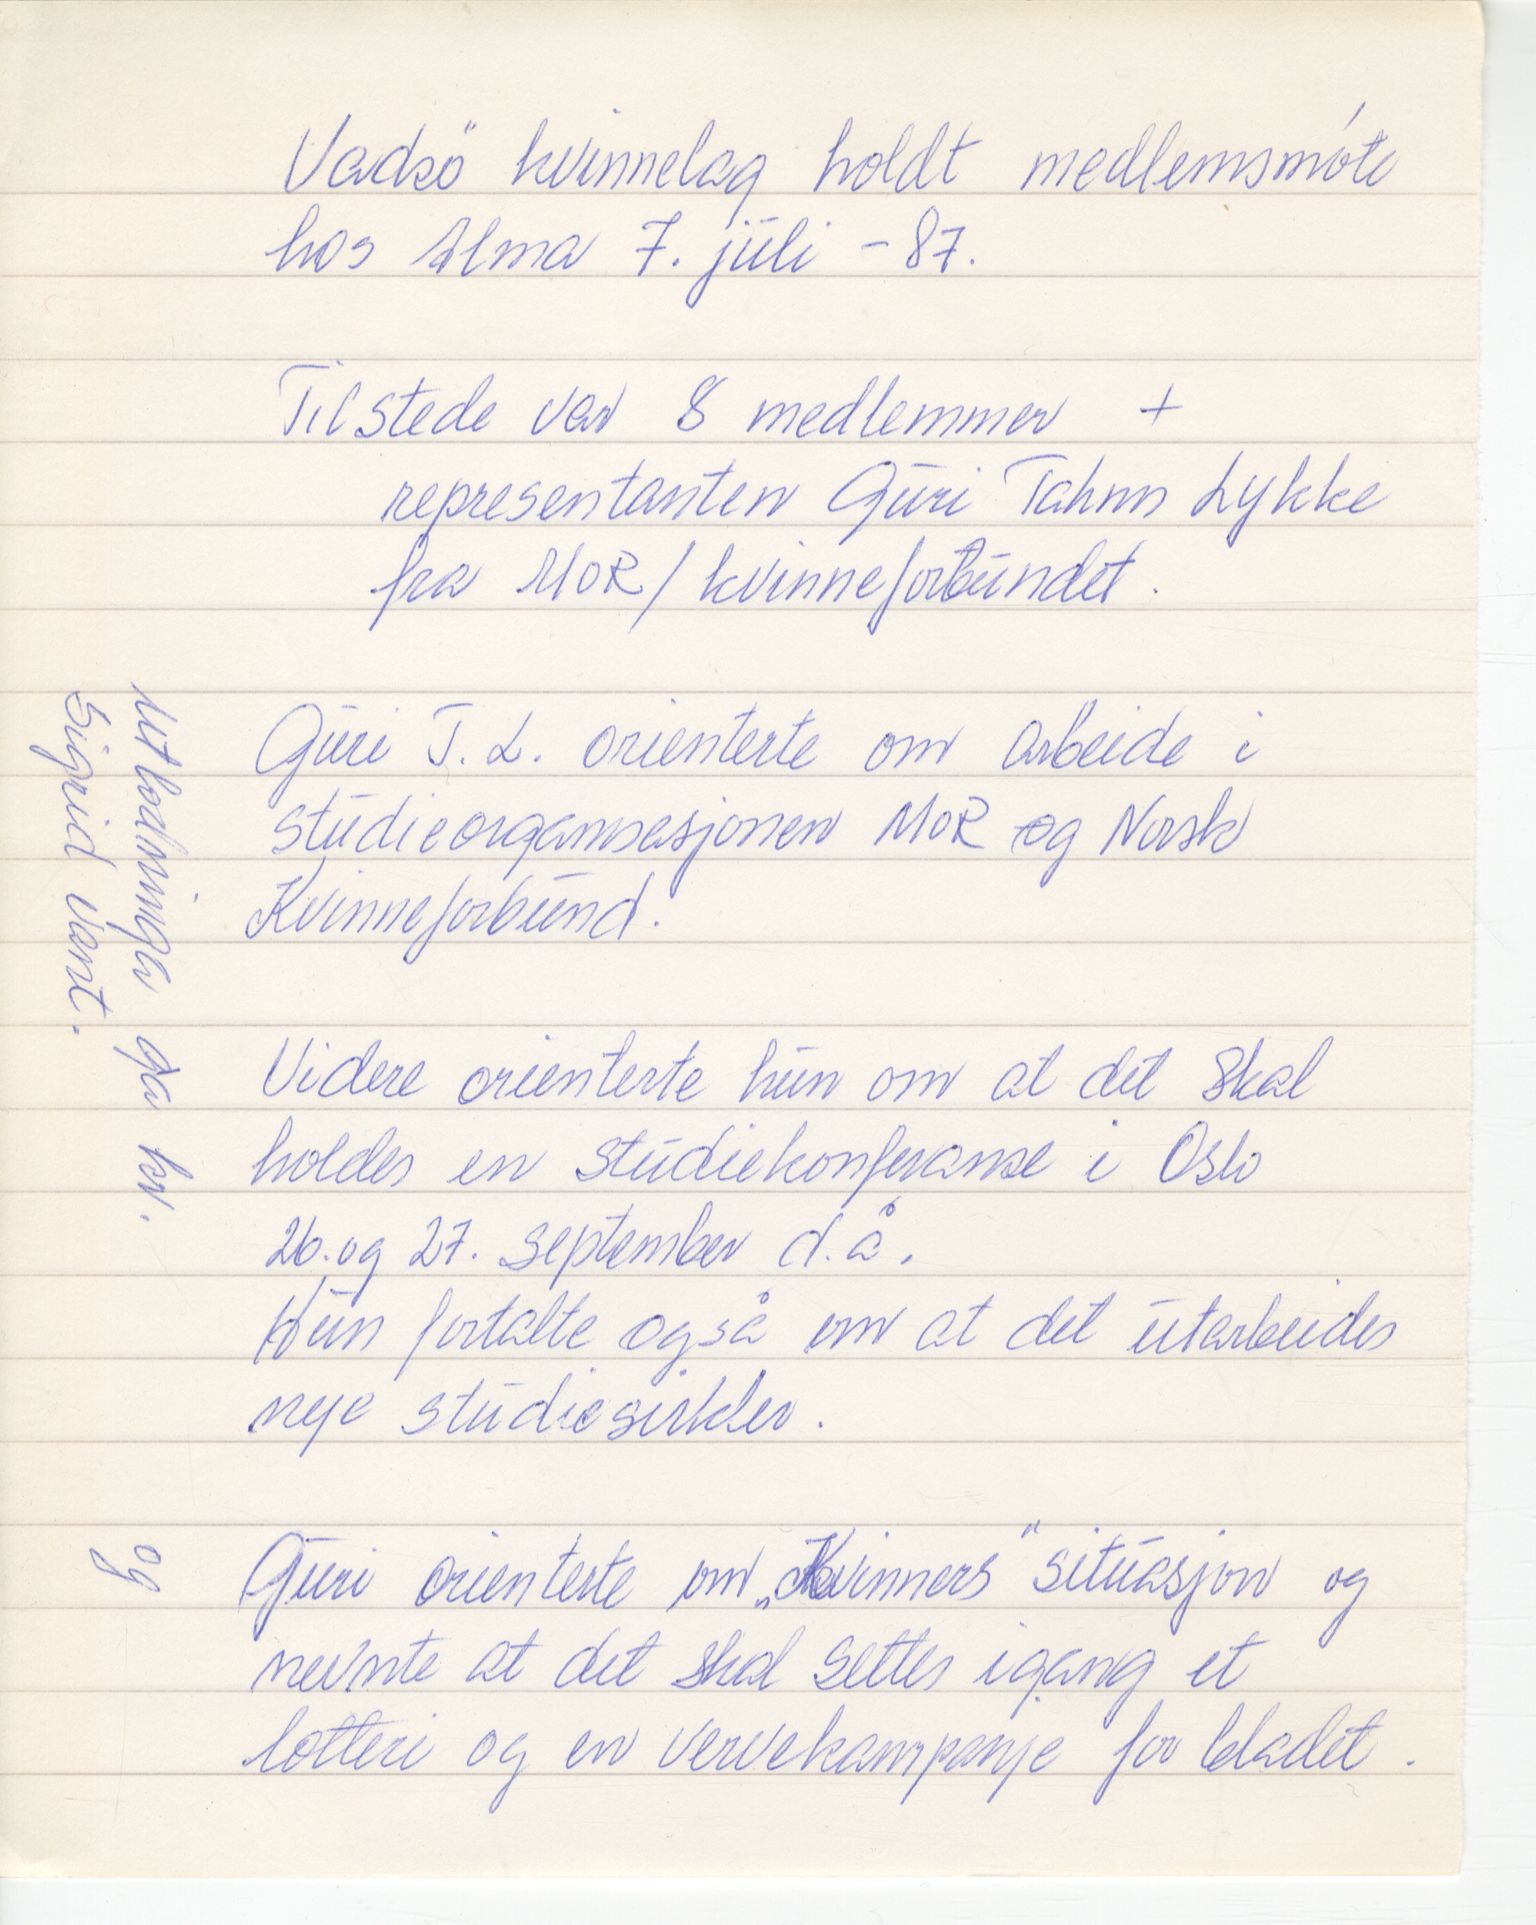 Vadsö kvinnelag holdt medlemsmöte
hos Alma 7. juli - 87.
Tilstede var 8 medlemmer +
representanten Guri Tahm Lykke
fra MOR / kvinneforbundet.
Guri T. L. orienterte om arbeide i
studieorganisasjonen MOR og Norsk
Kvinneforbund.
Videre orienterte hun om at det skal
holdes en studiekonferanse i Oslo
26. og 27. september d.å.
Hun fortalte også om at det utarbeides
nye studiesirkler.
Guri orienterte om „Kvinners" situasjon og
nevnte at det skal settes igang et
lotteri og en vervekampanje for bladet.
Utlodninga ga kr. og
Sigrid vant.